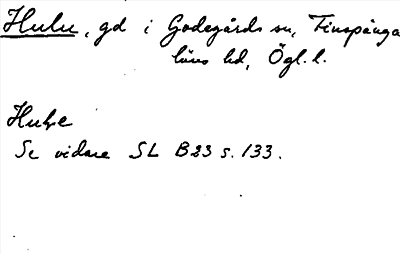 Hulu, gd i Godegårds sn, Finspånga
läns hd, Ögl. l.
Hulxe
Se vidare SL B23 s. 133.